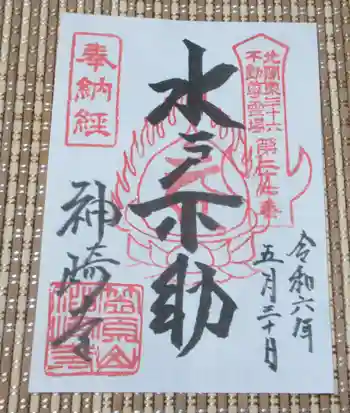 北関東三十六
不動尊霊場
令和六年
五月三十日
水戸不動
奉納経
神崎寺